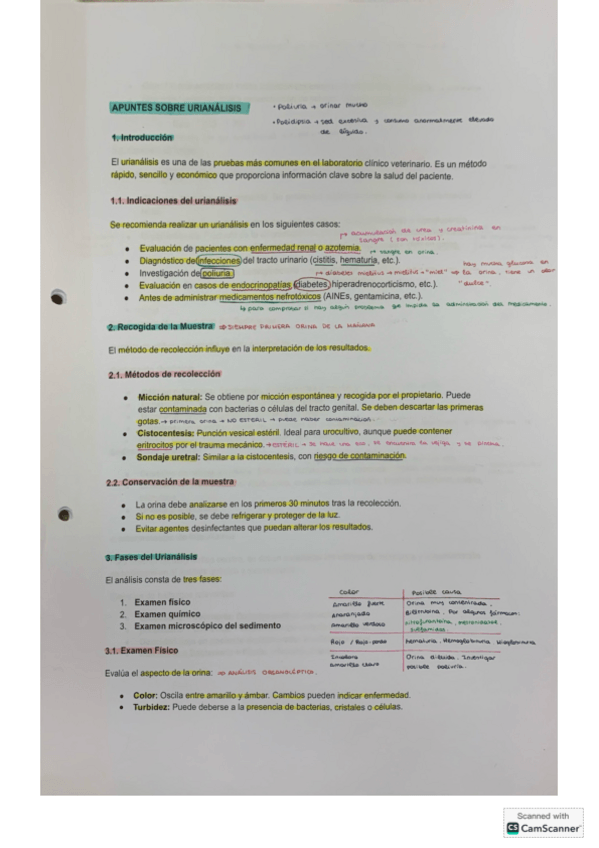 APUNTES SOBRE URIANÁLISIS
• Poliuria → orinar mucho
• Polidipsia → sed excesiva y consumo anormalmente elevado
de líquido.
1. Introducción
El urianálisis es una de las pruebas más comunes en el laboratorio clínico veterinario. Es un método
rápido, sencillo y económico que proporciona información clave sobre la salud del paciente.
1.1. Indicaciones del urianálisis
Se recomienda realizar un urianálisis en los siguientes casos:
→ acumulación de urea y creatinina en
sangre
• Evaluación de pacientes con enfermedad renal o azotemia.
→ sangre en orina.
• Diagnóstico de infecciones del tracto urinario (cistitis, hematuria, etc.).
• Investigación de poliuria.
→ diabetes mellitus → mellitus = "miel" → la orina, tiene un olor
"dulce".
hay mucha glucosa en
• Evaluación en casos de endocrinopatías (diabetes, hiperadrenocorticismo, etc.).
• Antes de administrar medicamentos nefrotóxicos (AINEs, gentamicina, etc.).
→ para comprobar si hay algún problema que impida la administración del medicamento.
2. Recogida de la Muestra → SIEMPRE PRIMERA ORINA DE LA MAÑANA
El método de recolección influye en la interpretación de los resultados.
2.1. Métodos de recolección
• Micción natural: Se obtiene por micción espontánea y recogida por el propietario. Puede
estar contaminada con bacterias o células del tracto genital. Se deben descartar las primeras
gotas. → primera orina → NO ESTÉRIL → puede haber contaminación.
• Cistocentesis: Punción vesical estéril. Ideal para urocultivo, aunque puede contener
eritrocitos por el trauma mecánico. → ESTÉRIL → Se hace una eco, se encuentra la vejiga y se pincha.
• Sondaje uretral: Similar a la cistocentesis, con riesgo de contaminación.
2.2. Conservación de la muestra
• La orina debe analizarse en los primeros 30 minutos tras la recolección.
• Si no es posible, se debe refrigerar y proteger de la luz.
• Evitar agentes desinfectantes que puedan alterar los resultados.
3. Fases del Urianálisis
El análisis consta de tres fases:
1. Examen físico
2. Examen químico
3. Examen microscópico del sedimento
Color Posible causa
Amarillo fuerte Orina muy concentrada.
Anaranjado Bilirrubina. Por algunos fármacos:
Amarillo verdoso nitrofurantoína,
sulfamidas.
Rojo / Rojo-pardo hematuria, Hemoglobinuria, Mioglobinuria
Incolora Orina diluida. Investigar
Amarillo claro posible poliuria.
3.1. Examen Físico
Evalúa el aspecto de la orina: → ANÁLISIS ORGANOLÉPTICO.
• Color: Oscila entre amarillo y ámbar. Cambios pueden indicar enfermedad.
• Turbidez: Puede deberse a la presencia de bacterias, cristales o células.
Scanned with
CS CamScanner